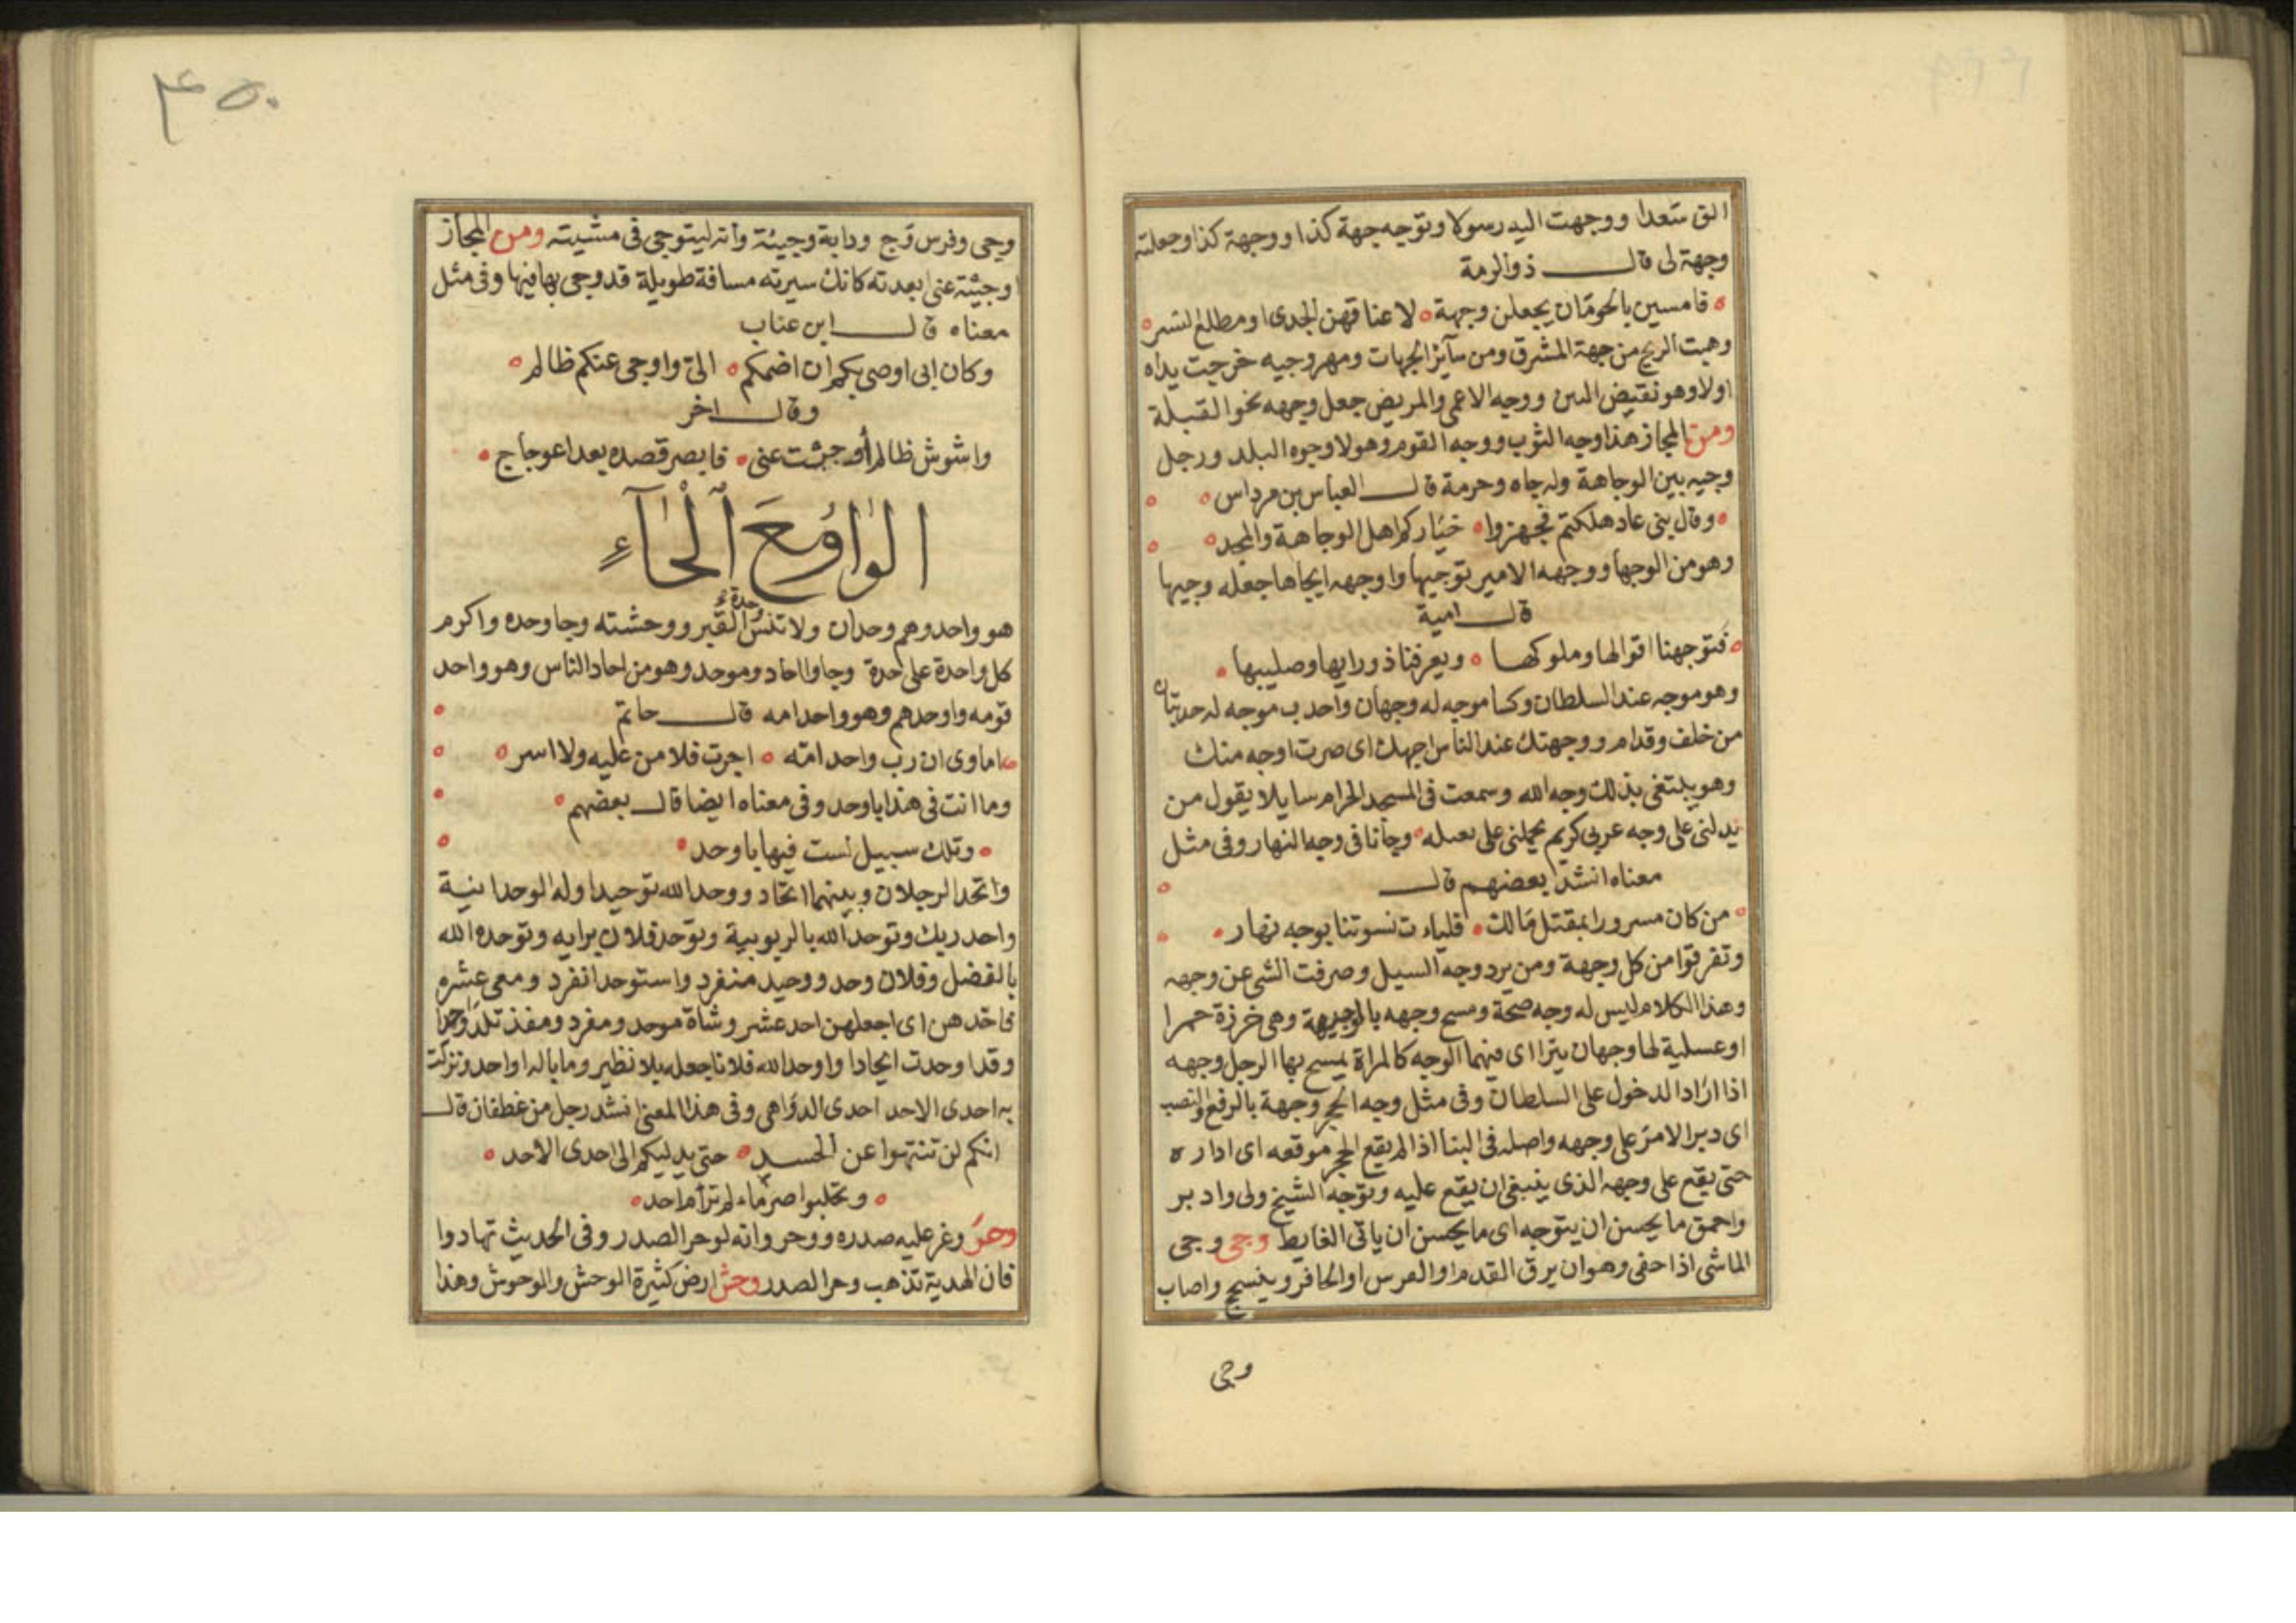 الق سعدا ووجهت اليه رسولا وتوجه جهة كذا ووجهة كذا وجعلته
وجهة لى قال ذو الرمة
فامسين بالحومان يجعلن وجهة لاعناقهن الجدى او مطلع النسر
وهبت الريح من جهة المشرق ومن سآئر الجهات ومهر وجيه خرجت يداه
اولا وهو نقيض اليتن ووجه الاعمى والمريض جعل وجهه نحو القبلة
ومن المجاز هذا وجه الثوب ووجه القوم وهولا وجوه البلد ورجل
وجيه بين الوجاهة وله جاه وحرمة قال العباس بن مرداس
وقال بنى عاد هلكتم فجهزوا خياركم اهل الوجاهة والمجد
وهو من الوجها ووجهه الامير توجيها واوجهه ايجاها جعله وجيها
قال امية
فتوجهنا اقوالها وملوكها ويعرفنا ذو رايها وصليبها
وهو موجه عند السلطان وكسا موجه له وجهان واحدب موجه له حدبتان
من خلف وقدام ووجهتك عند الناس اجهك اى صرت اوجه منك
وهو يبتغى بذلك وجه الله وسمعت فى المسجد الحرام سايلا يقول من
يدلنى على وجه عربى كريم يحملنى على نعيله وجآنا فى وجه النهار وفى مثل
معناه انشد بعضهم قال
من كان مسرورا بمقتل مالك فليات نسوتنا بوجه نهار
وتفرقوا من كل وجهة ومن يرد وجه السيل وصرفت الشى عن وجهه
وهذا الكلام ليس له وجه صحة ومسح وجهه بالوجيهة وهى خرزة حمرا
او عسلية لها وجهان يترااى فيهما الوجه كالمراة يمسح بها الرجل وجهه
اذا اراد الدخول على السلطان وفى مثل وجه الحجر وجهة بالرفع والنصب
اى دبر الامر على وجهه واصله فى البنا اذا لم يقع الحجر موقعه اى اداره
حتى يقع على وجهه الذى ينبغى ان يقع عليه وتوجه الشيخ ولى وادبر
واحمق ما يحسن ان يتوجه اى ما يحسن ان ياتى الغايط وجى وجى
الماشى اذا حفى وهو ان يرق القدم او الفرس او الحافر وينسحج واصاب
وجى
٤٥٠
وجى وفرس وَج ودابة وجيئة وانه ليتوجى فى مشيته ومن المجاز
اوجيته عنى ابعدته كانك سيرته مسافة طويلة قد وجى بها فيها وفى مثل
معناه قال ابن عناب
وكان ابى اوصى بكم ان اضمكم الىّ واوجى عنكم ظالم
وقال اخر
واشوش ظالم أوجيت عنى فابصر قصده بعد اعوجاج
الواو مع الحاء
هو واحد وهم وحدان ولا تنس وحدة القبر ووحشته وجا وحده واكرم
كل واحدة على حدة وجاوا احاد وموحد وهو من احاد الناس وهو واحد
قومه واوحدهم وهو واحد امه قال حاتم
اماوى ان رب واحد امّه اجرت فلا من عليه ولا اسر
وما انت فى هذا باوحد وفى معناه ايضا قال بعضهم
وتلك سبيل لست فيها باوحد
واتحد الرجلان وبينهما اتحاد ووحد الله توحيدا وله الوحدانية
واحد ربك وتوحد الله بالربوبية وتوحد فلان برايه وتوحده الله
بالفضل وفلان وحد ووحيد منفرد واستوحد انفرد ومعى عشره
فاحدهن اى اجعلهن احد عشر وشاة موحد ومفرد ومفذ تلد واحدا
وقد اوحدت ايحادا واوحد الله فلانا جعله بلا نظير وما باله ا واحد ونزلت
به احدى الاحد احدى الدواهى وفى هذا المعنى انشد رجل من غطفان قال
انكم لن تنتهوا عن الحسد حتى يدليكم الى احدى الاحد
وتحلبوا صرماء لم ترأم احد
وحر وغر عليه صدره ووحر وانه لوحر الصدر وفى الحديث تهادوا
فان الهدية تذهب وحر الصدر وحش ارض كثيرة الوحش والوحوش وهذا